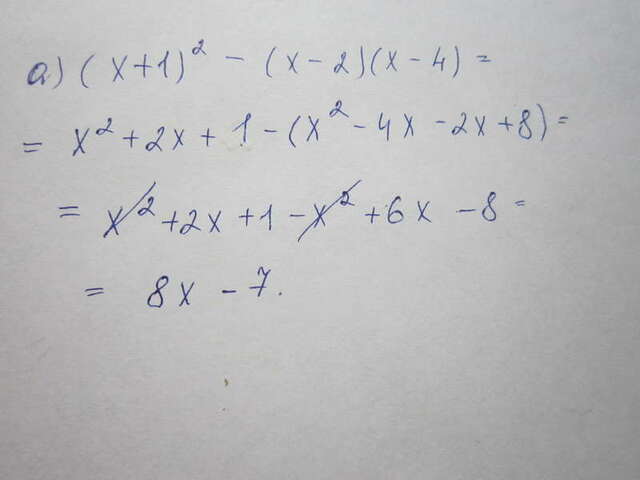 а) (x+1)² - (x-2)(x-4) =
= x² + 2x + 1 - (x² - 4x - 2x + 8) =
= x² + 2x + 1 - x² + 6x - 8 =
= 8x - 7.